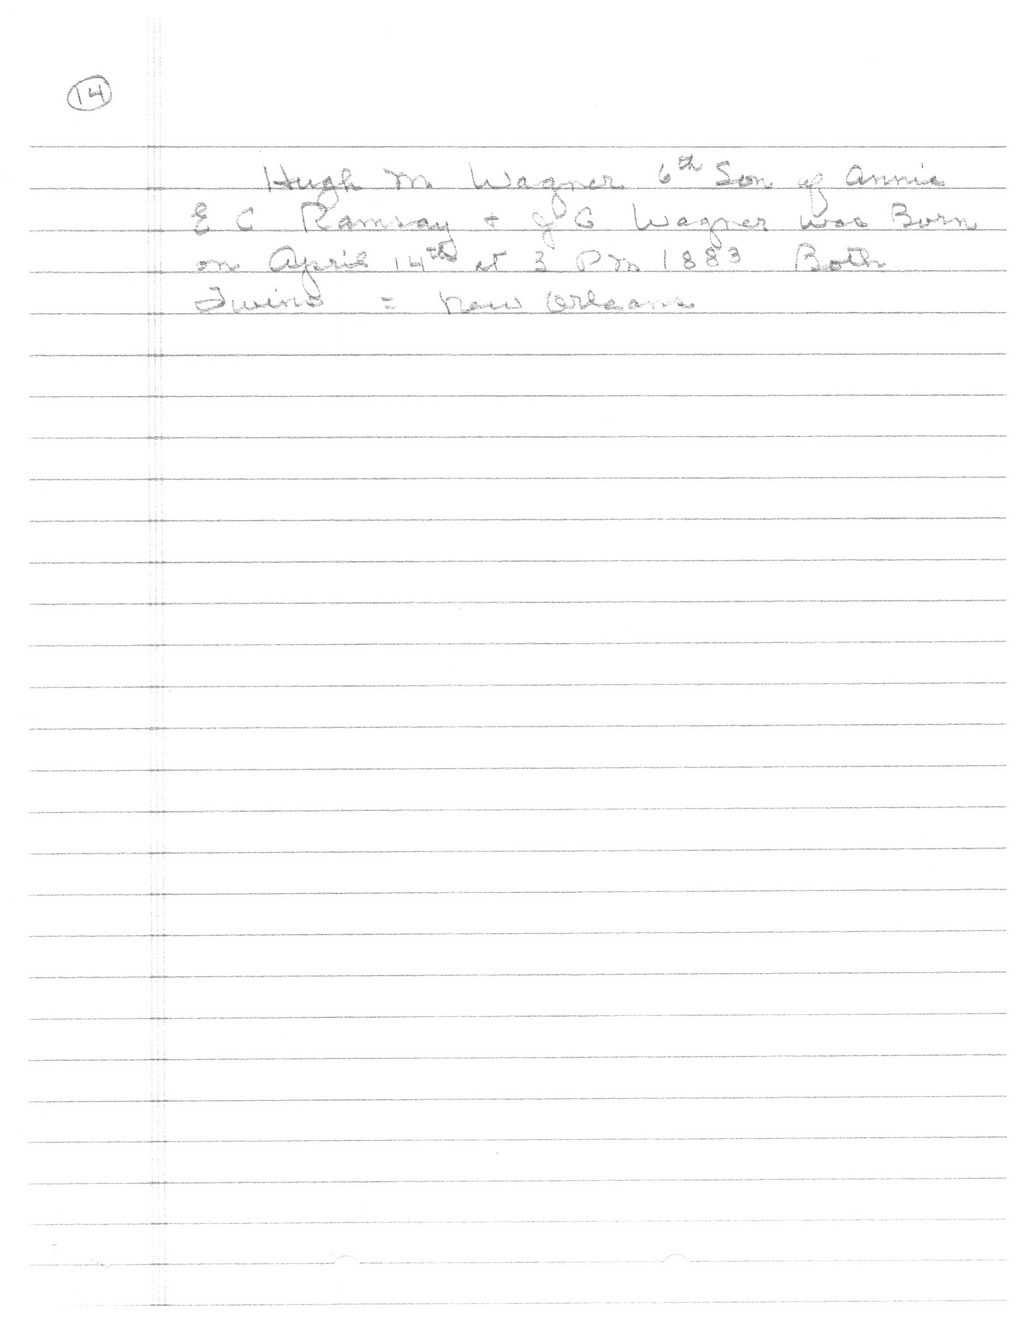 14
Hugh M Wagner 6th Son of Annie
E C Ramsay + J G Wagner was Born
on April 14th at 3 PM 1883 Both
Twins = New Orleans